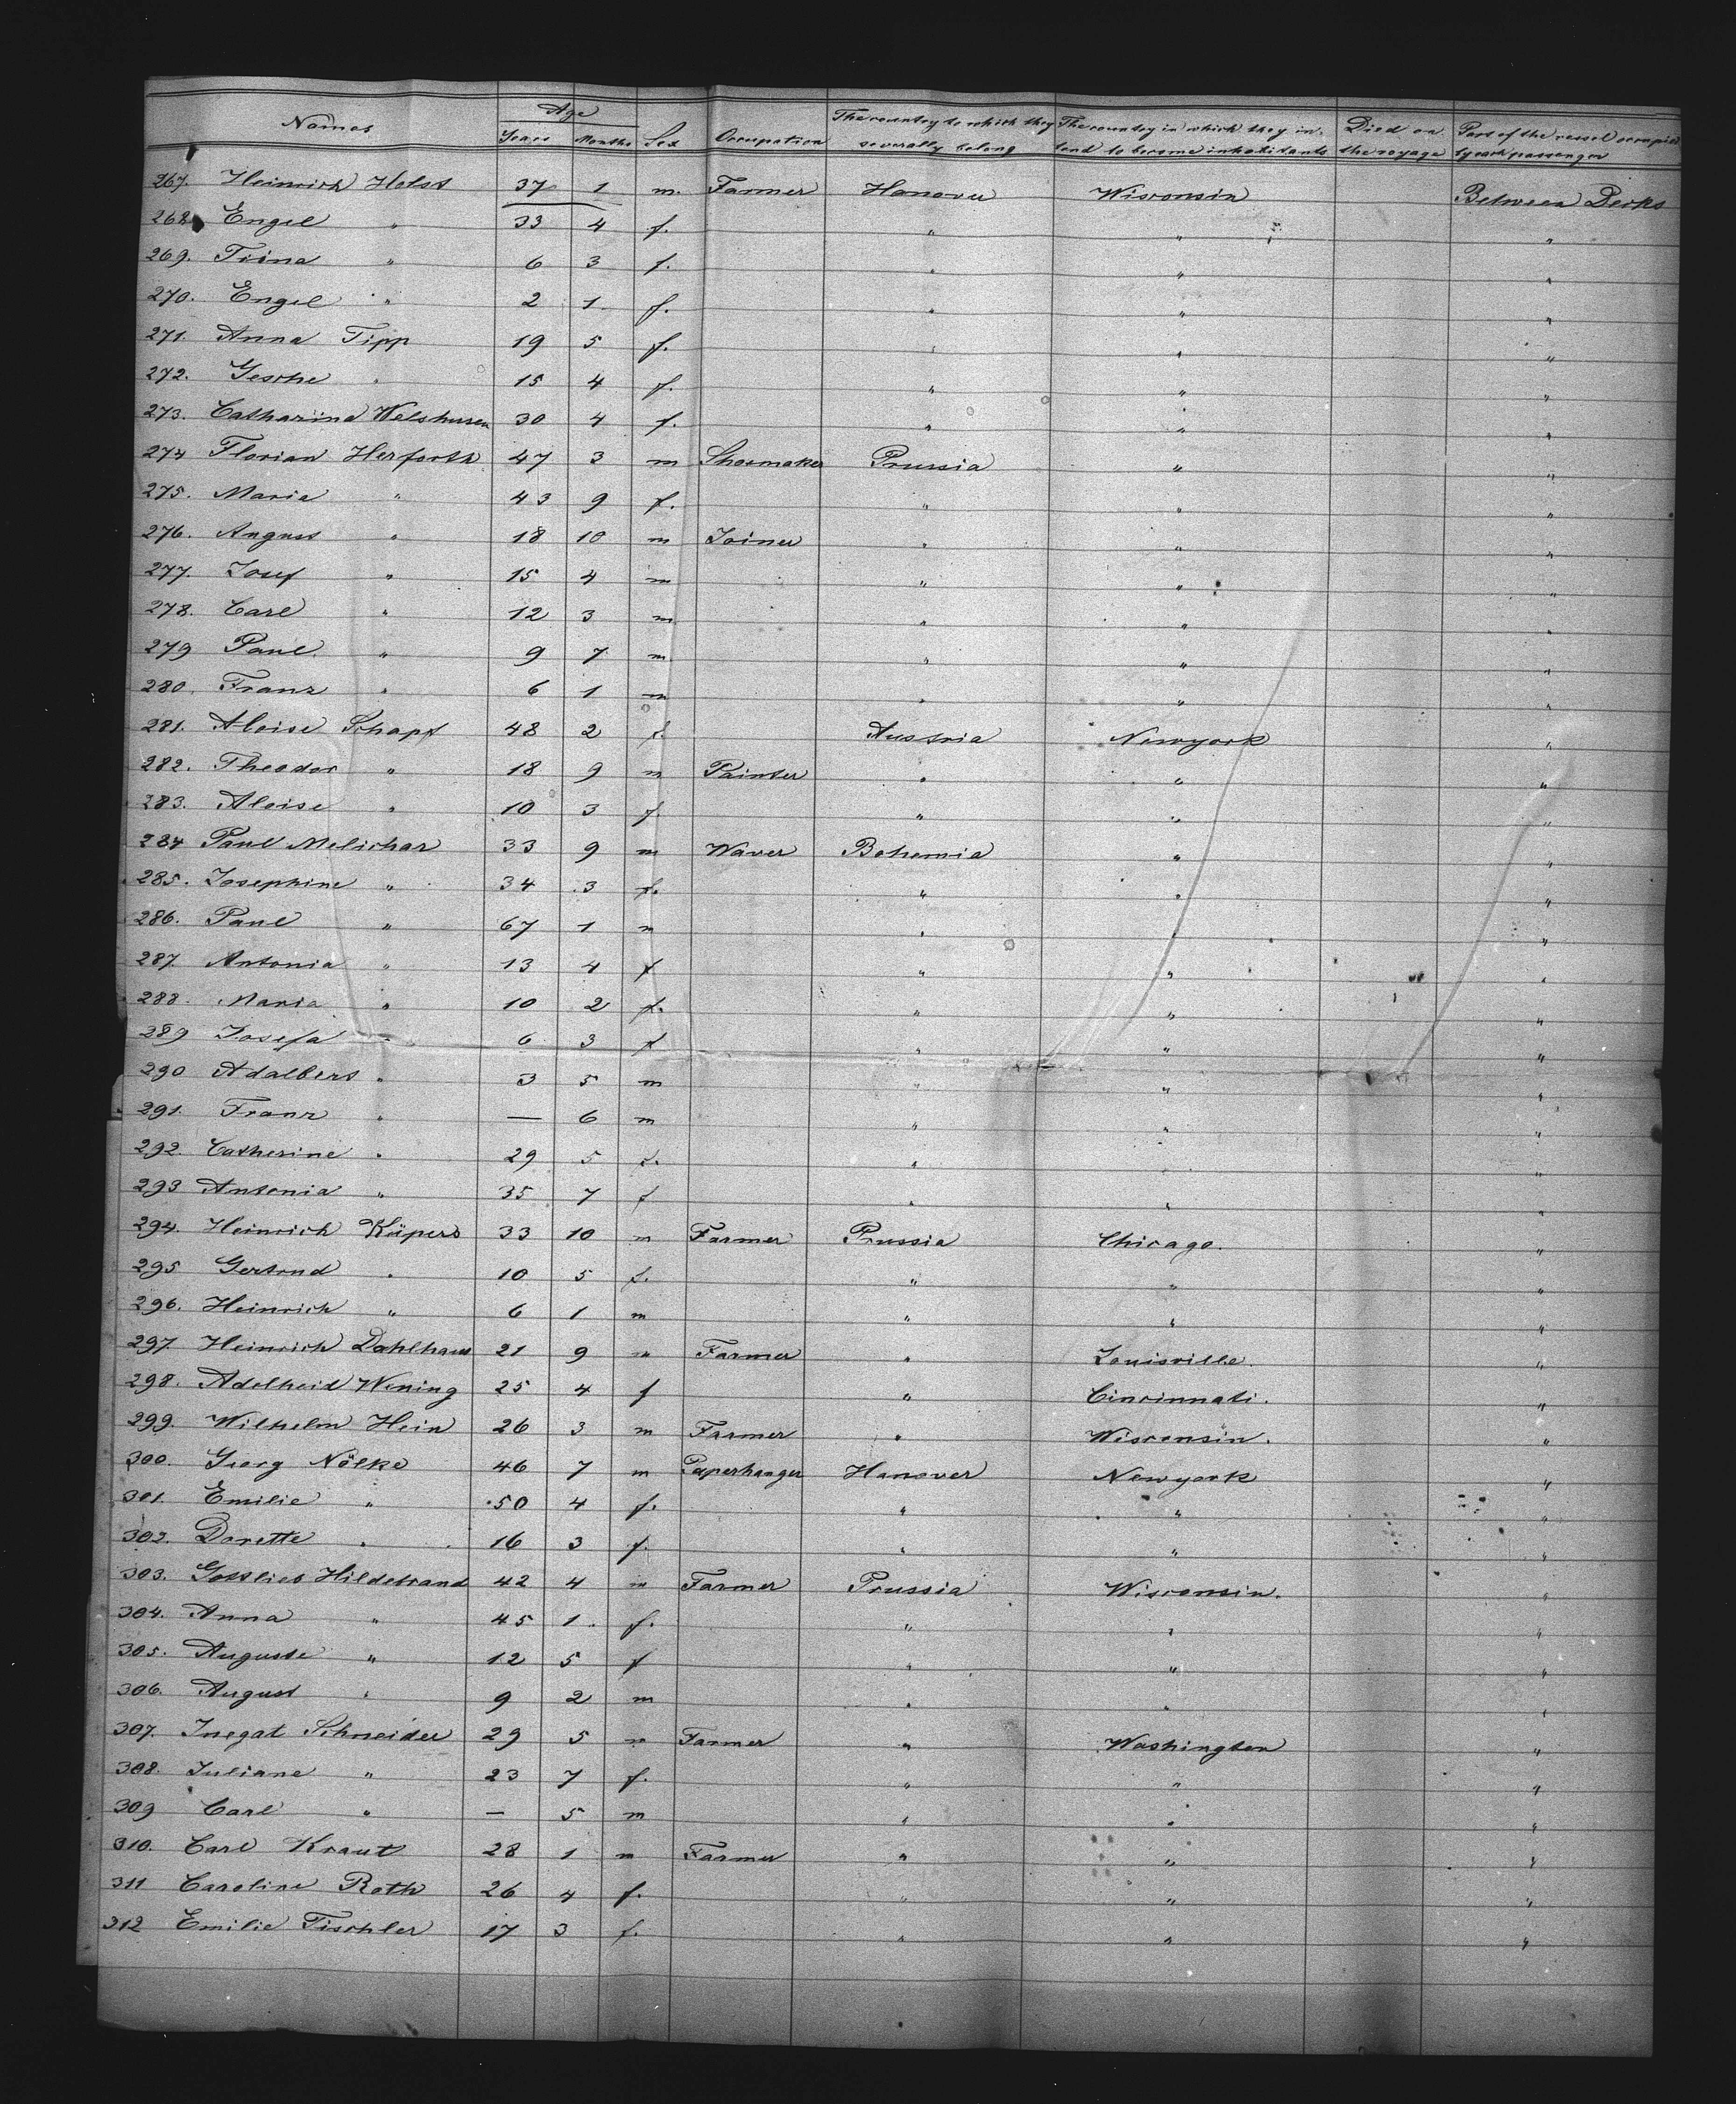 Names Age Years Months Sex Occupation The country to which they severally belong The country in which they intend to become inhabitants Died on the voyage Part of the vessel occupied by each passenger
267. Heinrich Holst 37 1 m. Farmer Hanover Wisconsin Between Decks
268. Engel " 33 4 f. " " "
269. Trina " 6 3 f. " " "
270. Engel " 2 1 f. " " "
271. Anna Tipp 19 5 f. " " "
272. Gesche " 15 4 f. " " "
273. Catharina Welshusen 30 4 f. " " "
274 Florian Herforth 47 3 m Shoemaker Prussia " "
275. Maria " 43 9 f. " " "
276. August " 18 10 m Joiner " " "
277. Josef " 15 4 m " " "
278. Carl " 12 3 m " " "
279 Paul " 9 7 m " " "
280. Franz " 6 1 m " " "
281. Aloise Schapf 48 2 f. Austria Newyork "
282. Theodor " 18 9 m Painter " " "
283. Aloise " 10 3 f. " " "
284 Paul Melichar 33 9 m Waver Bohemia " "
285. Josephine " 34 3 f. " " "
286. Paul " 67 1 m " " "
287. Antonia " 13 4 f " " "
288. Maria " 10 2 f. " " "
289 Josefa " 6 3 f " " "
290 Adalbert " 3 5 m " " "
291. Franz " — 6 m " " "
292. Catherine " 29 5 f. " " "
293 Antonia " 35 7 f " " "
294. Heinrich Küpers 33 10 m Farmer Prussia Chicago. "
295 Gertrud " 10 5 f. " " "
296. Heinrich " 6 1 m " " "
297. Heinrich Dahlhaus 21 9 m Farmer " Louisville. "
298. Adelheid Wening 25 4 f " Cincinnati. "
299. Wilhelm Hein 26 3 m Farmer " Wisconsin. "
300. Georg Nölke 46 7 m Paperhanger Hanover Newyork "
301. Emilie " 50 4 f. " " "
302. Dorette " 16 3 f. " " "
303. Gottlieb Hildebrand 42 4 m Farmer Prussia Wisconsin. "
304. Anna " 45 1. f. " " "
305. Auguste " 12 5 f " " "
306. August " 9 2 m " " "
307. Inegat Schneider 29 5 m Farmer " Washington "
308. Juliane " 23 7 f. " " "
309 Carl " — 5 m " " "
310. Carl Kraut 28 1 m Farmer " " "
311 Caroline Roth 26 4 f. " " "
312 Emilie Tischler 17 3 f. " " "